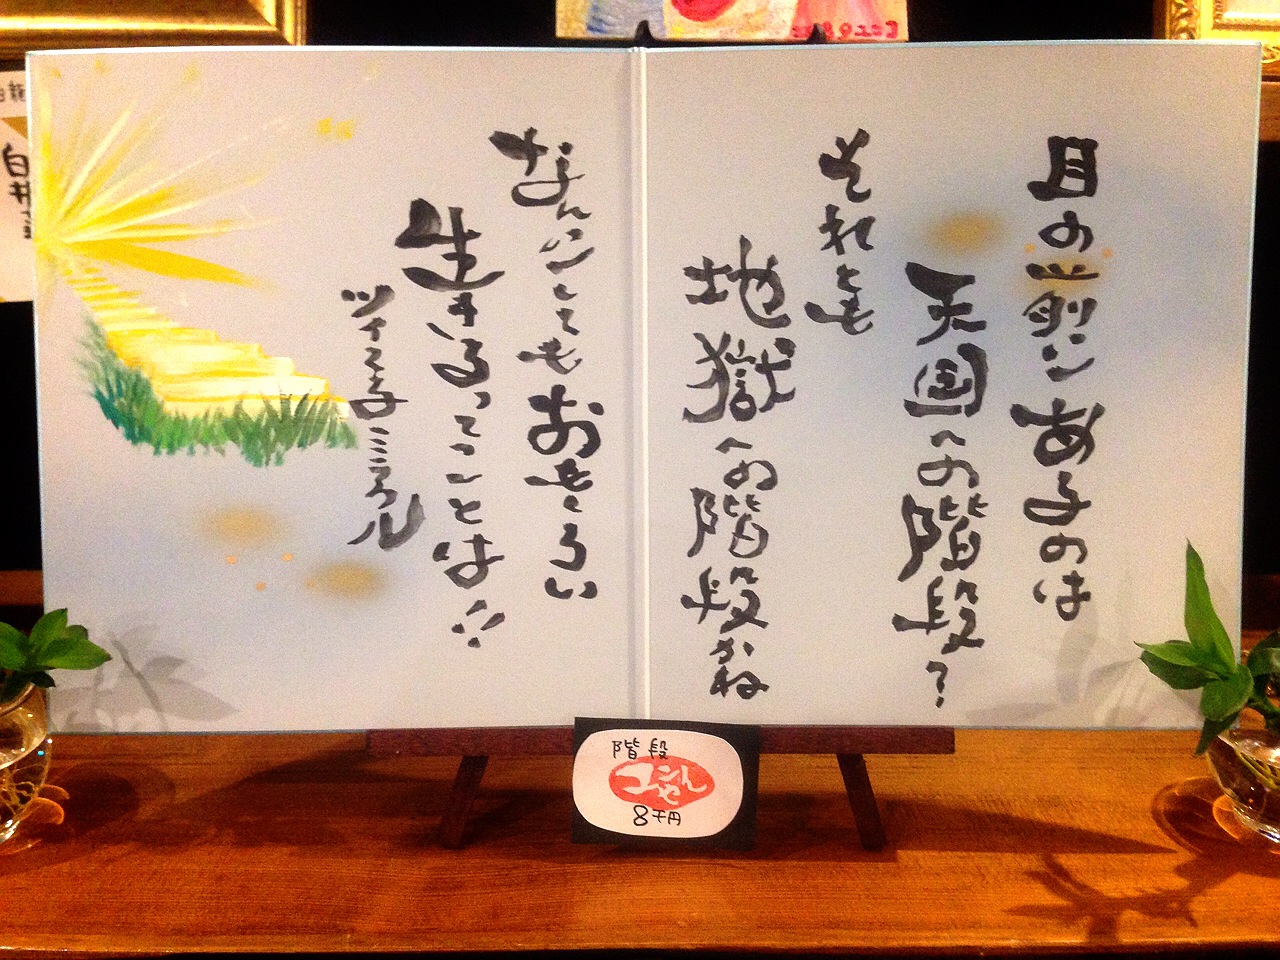 目の前にあるのは
天国への階段?
それとも
地獄への階段かね
なんにしてもおもしろい
生きるってことは!!
階段
8千円
白井